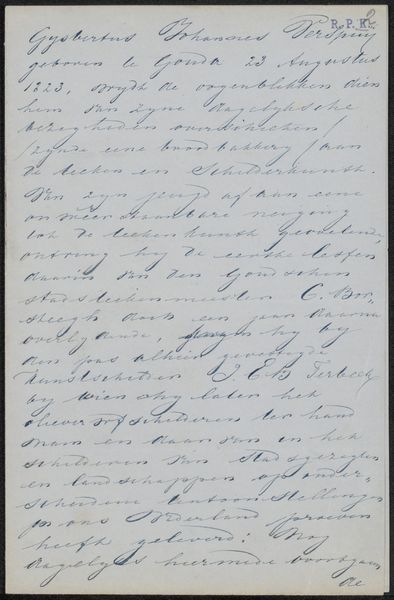 R.P.K.
Gysbertus Johannes Verspuy
geboren te Gouda 23 Augustus
1823, wydt de oogenblikken dien
hem van zyne dagelyksche
bezigheden overschieten
/zynde eene broodbakkery/ aan
de teeken en Schilderkunst.
Van zyn jeugd af aan eene
onweerstaanbare neiging
tot de teekenkunst gevoelende,
ontving hy de eerste lessen
daarin van den Goudschen
stadsteekenmeester C. Bor-
steegh doch een jaar daarna
overlydende, ging hy by
den pas alhier gevestigde
Kunstschilder J. E.
by wien hy later het
olieverfschilderen ter hand
nam en daar van in het
schilderen van Stadsgezigten
en landschappen op onder-
scheidene tentoonstellingen
in ons Nederland proeven
heeft geleverd: Nog
dagelyks hiermede voortgaan
de